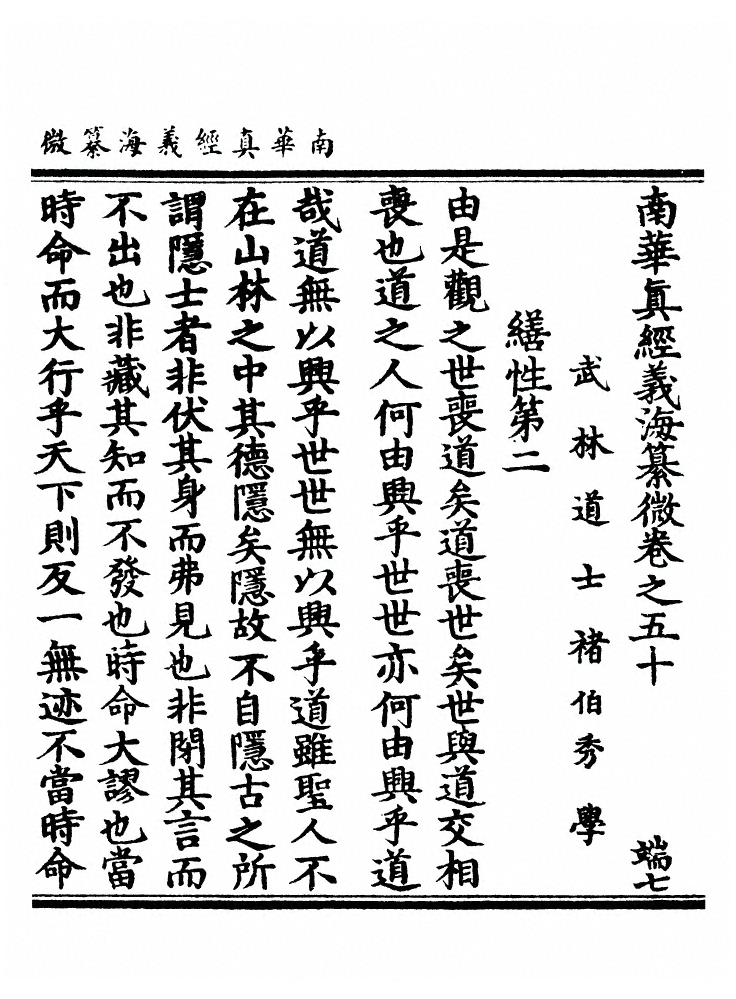 南華真經義海纂微
南華真經義海纂微卷之五十 端七
武林道士褚伯秀學
繕性第二
由是觀之世喪道矣道喪世矣世與道交相
喪也道之人何由興乎世世亦何由興乎道
哉道無以興乎世世無以興乎道雖聖人不
在山林之中其德隱矣隱故不自隱古之所
謂隱士者非伏其身而弗見也非閉其言而
不出也非藏其知而不發也時命大謬也當
時命而大行乎天下則反一無迹不當時命